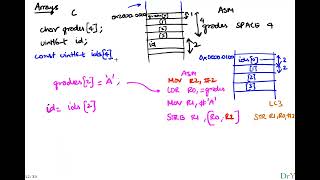 Arrays
C
char grades[4];
uint16-t id;
const uint16-t ids[4]
grades[2] = 'A';
id = ids[2]
0x2000.0000
[1]
[2]
[3]
id
4
2
ASM
grades SPACE 4
0x0000.0100
ids[0]
[1]
[2]
[3]
2
2
ASM
MOV R2, #2
LDR R0, =grades
MOV R1, #'A'
STRB R1, [R0, R2]
LC3
STR R1, R0, #2